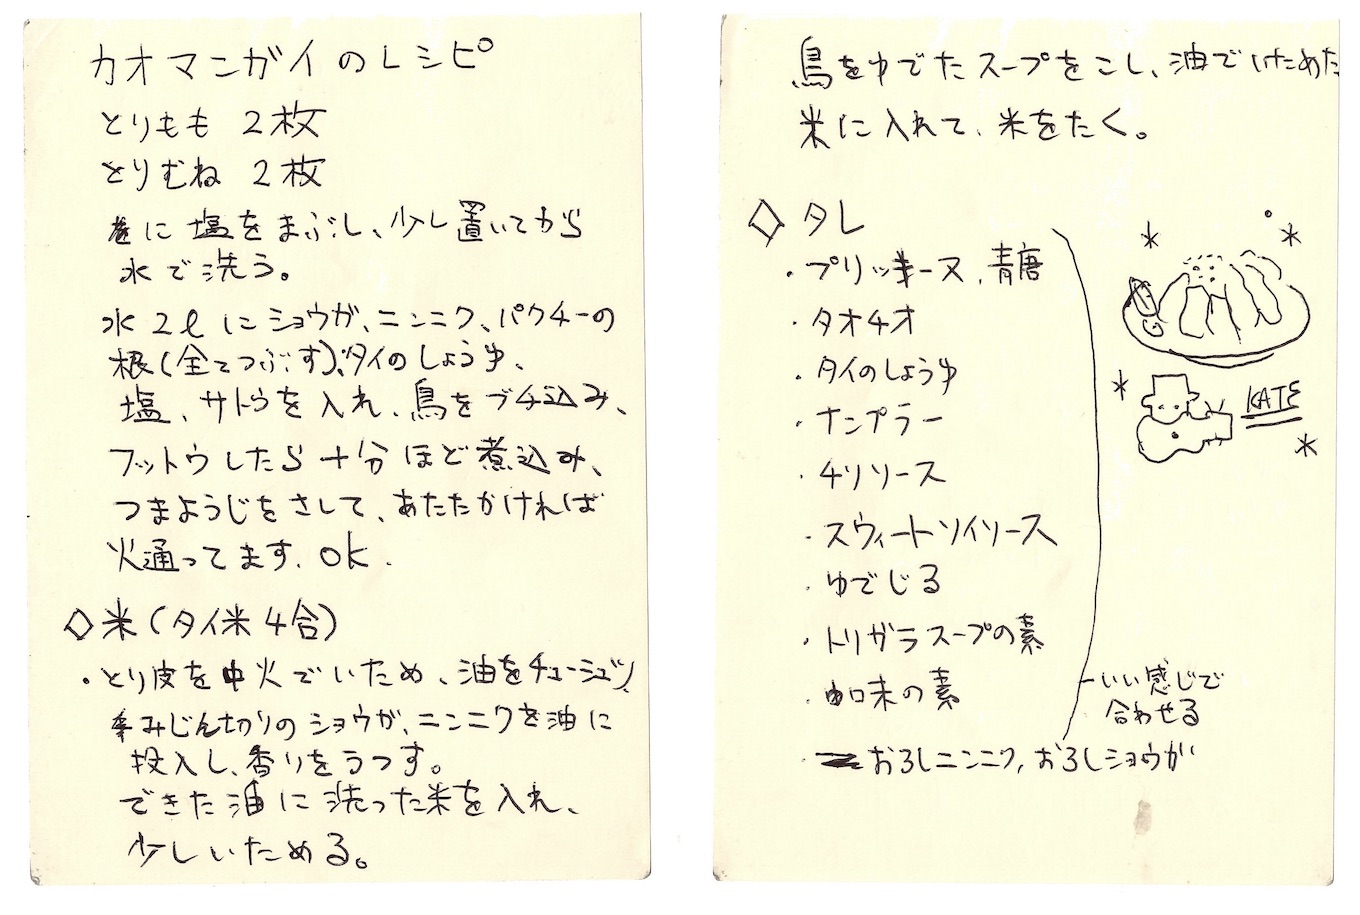 カオマンガイのレシピ
とりもも 2枚
とりむね 2枚
に塩をまぶし、少し置いてから
水で洗う。
水2ℓにショウガ、ニンニク、パクチーの
根(全てつぶす)、タイのしょうゆ、
塩、サトウを入れ、鳥をブチ込み、
フットウしたら十分ほど煮込み、
つまようじをさして、あたたかければ
火通ってます。OK.
◇米(タイ米4合)
・とり皮を中火でいため、油をチューシュツ、
みじん切りのショウガ、ニンニクを油に
投入し、香りをうつす。
できた油に洗った米を入れ、
少しいためる。
鳥をゆでたスープをこし、油でいためた
米に入れて、米をたく。
◇タレ
・プリッキーヌ、青唐
・タオチオ
・タイのしょうゆ
・ナンプラー
・チリソース
・スウィートソイソース
・ゆでじる
・トリガラスープの素
・味の素
・おろしニンニク, おろしショウガ
いい感じで
合わせる
KATE